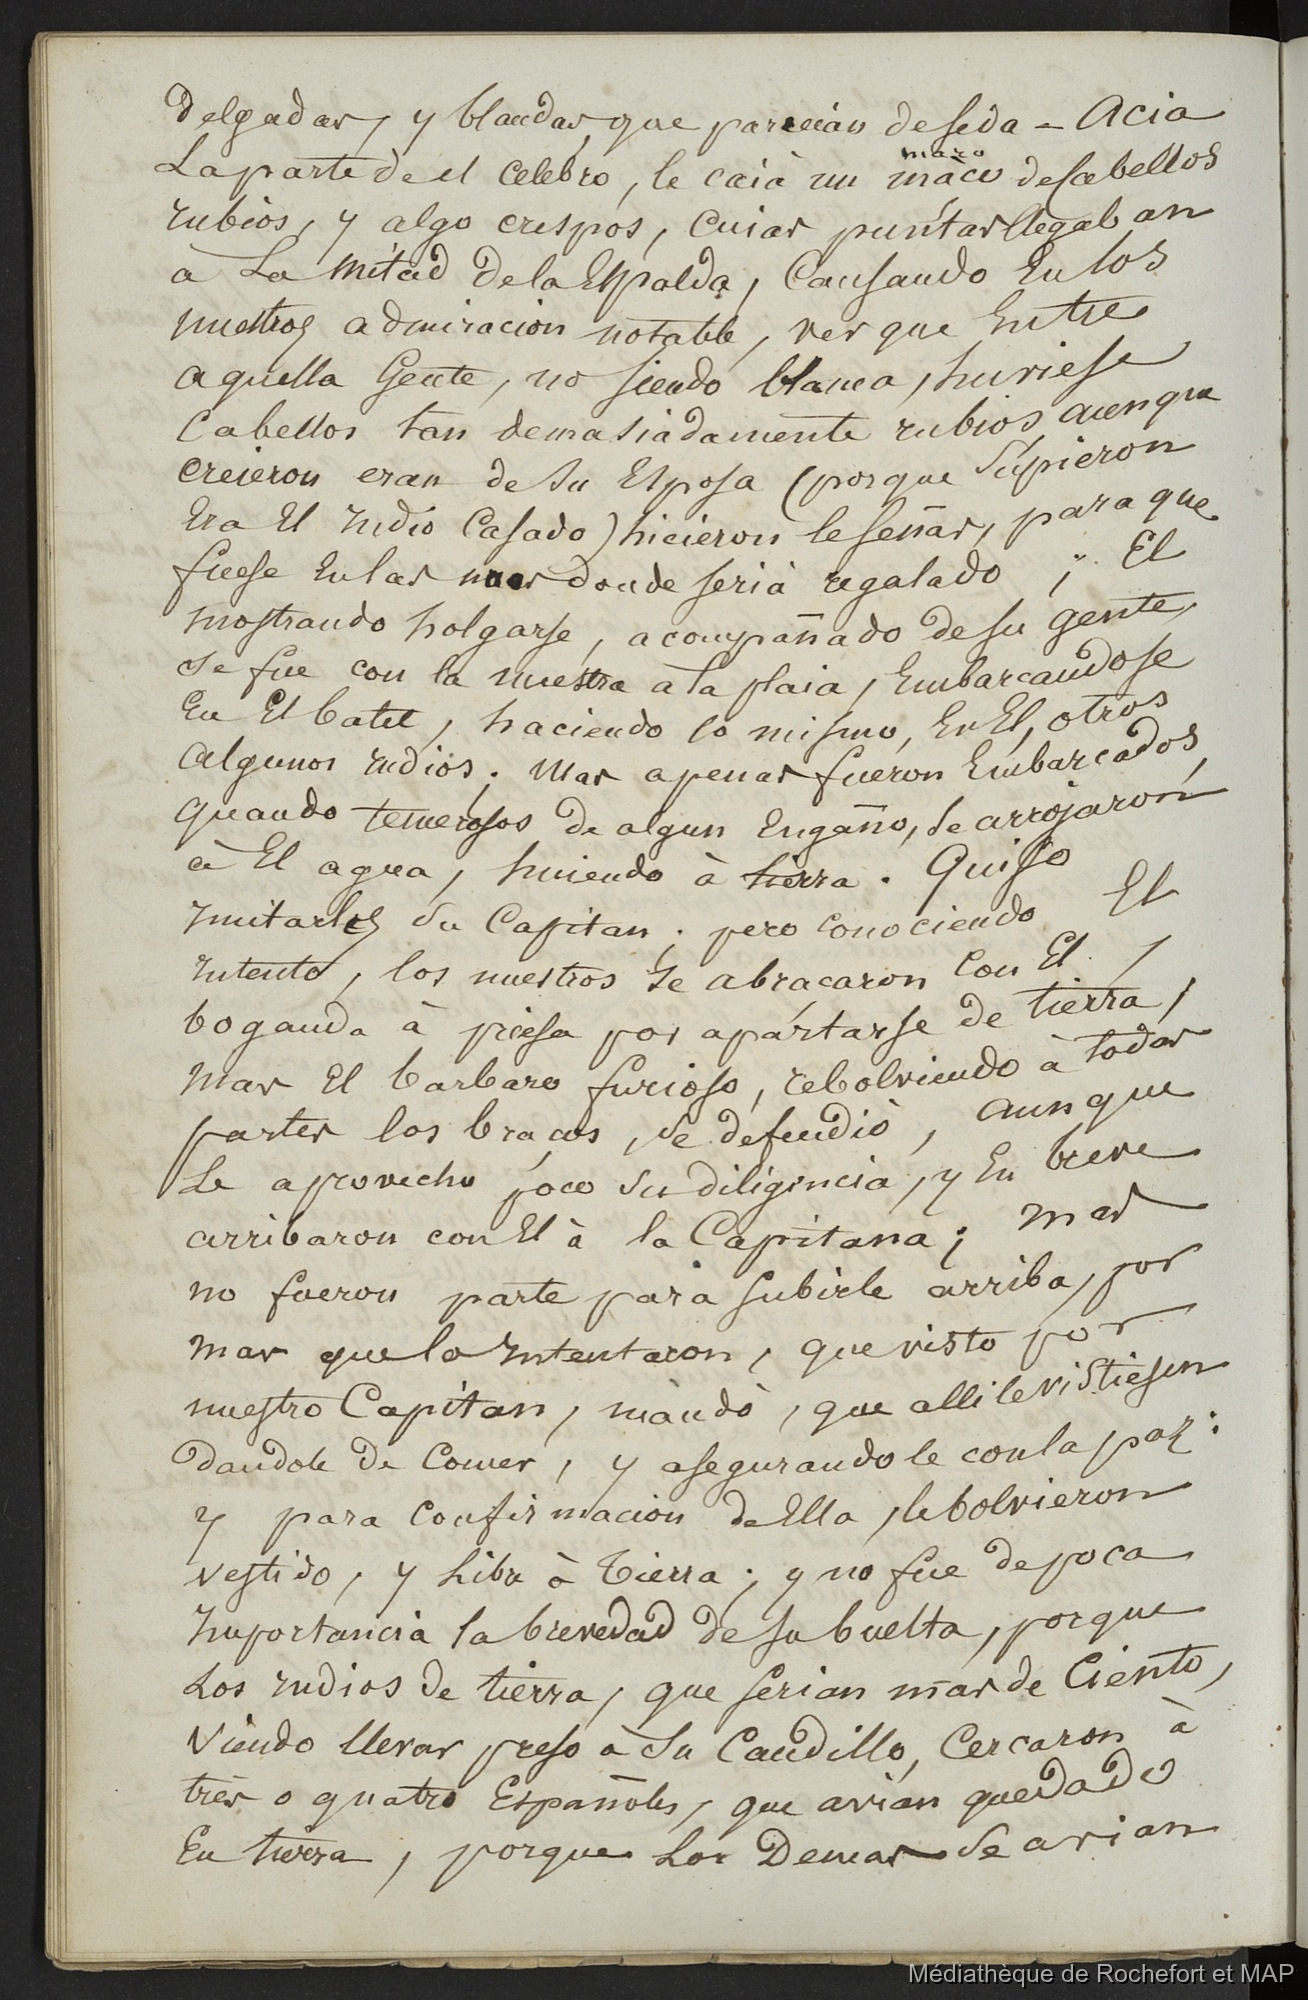 delgadas, y blandas, que parecian de seda - Acia
La parte de el celebro, le caià un maço de cabellos
mazo
rubios, y algo crespos, cuias puntas llegaban
a La mitad de la Espalda, Causando En los
nuestros admiracion notable, ver que Entre
aquella Gente, no siendo blanca, huviese
Cabellos tan demasiadamente rubios, aunque
creieron eran de su Esposa (porque supieron
Era El Indio Casado) hicieronle señas, para que
fuese En las naos donde serià regalado ; El
mostrando holgarse, acompañado de su gente,
se fue con la nuestra a la plaia, Embarcandose
En El batel, haciendo lo mismo, En El, otros
Algunos Indios; Mas apenas fueron Embarcados,
quando temerosos de algun Engaño, se arrojaron
à El agua, huiendo à tierra. Quiso
Imitarles su Capitan; pero conociendo El
Intento, los nuestros se abraçaron con El,
boganda à priesa por apartarse de tierra,
Mas El barbaro furioso, rebolviendo à todas
partes los braços, se defendiò, aunque
Le aprovecho poco su diligencia, y En breve
arribaron con El à la Capitana; mas
no fueron parte para subirle arriba, por
mas que lo Intentaron, que visto por
nuestro Capitan, mandò, que alli le vistiesen
dandole de Comer, y asegurandole con la paz:
y para Confirmacion de Ella, le bolvieron
vestido, y libre à Tierra; y no fue de poca
Importancia la brevedad de su buelta, porque
Los Indios de tierra, que serian mas de Ciento,
viendo llevar preso à Su Caudillo, Cercaron à
tres o quatro Españoles, que avian quedado
En tierra, porque Los Demas se avian
Médiathèque de Rochefort et MAP